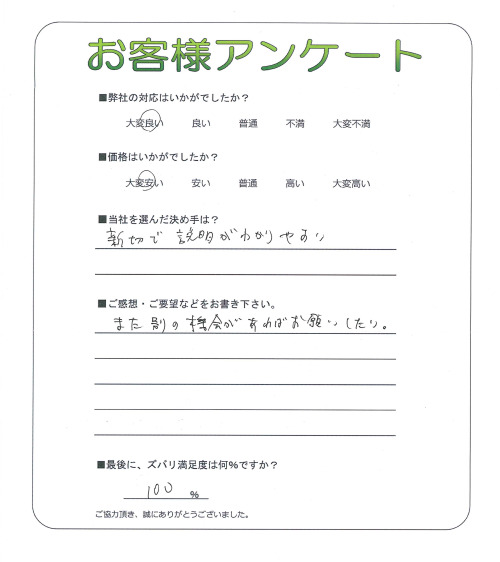 お客様アンケート
■弊社の対応はいかがでしたか？
大変良い 良い 普通 不満 大変不満
■価格はいかがでしたか？
大変安い 安い 普通 高い 大変高い
■当社を選んだ決め手は？
親切で 説明がわかりやすい
■ご感想・ご要望などをお書き下さい。
また別の機会があればお願いしたい。
■最後に、ズバリ満足度は何%ですか？
100 %
ご協力頂き、誠にありがとうございました。